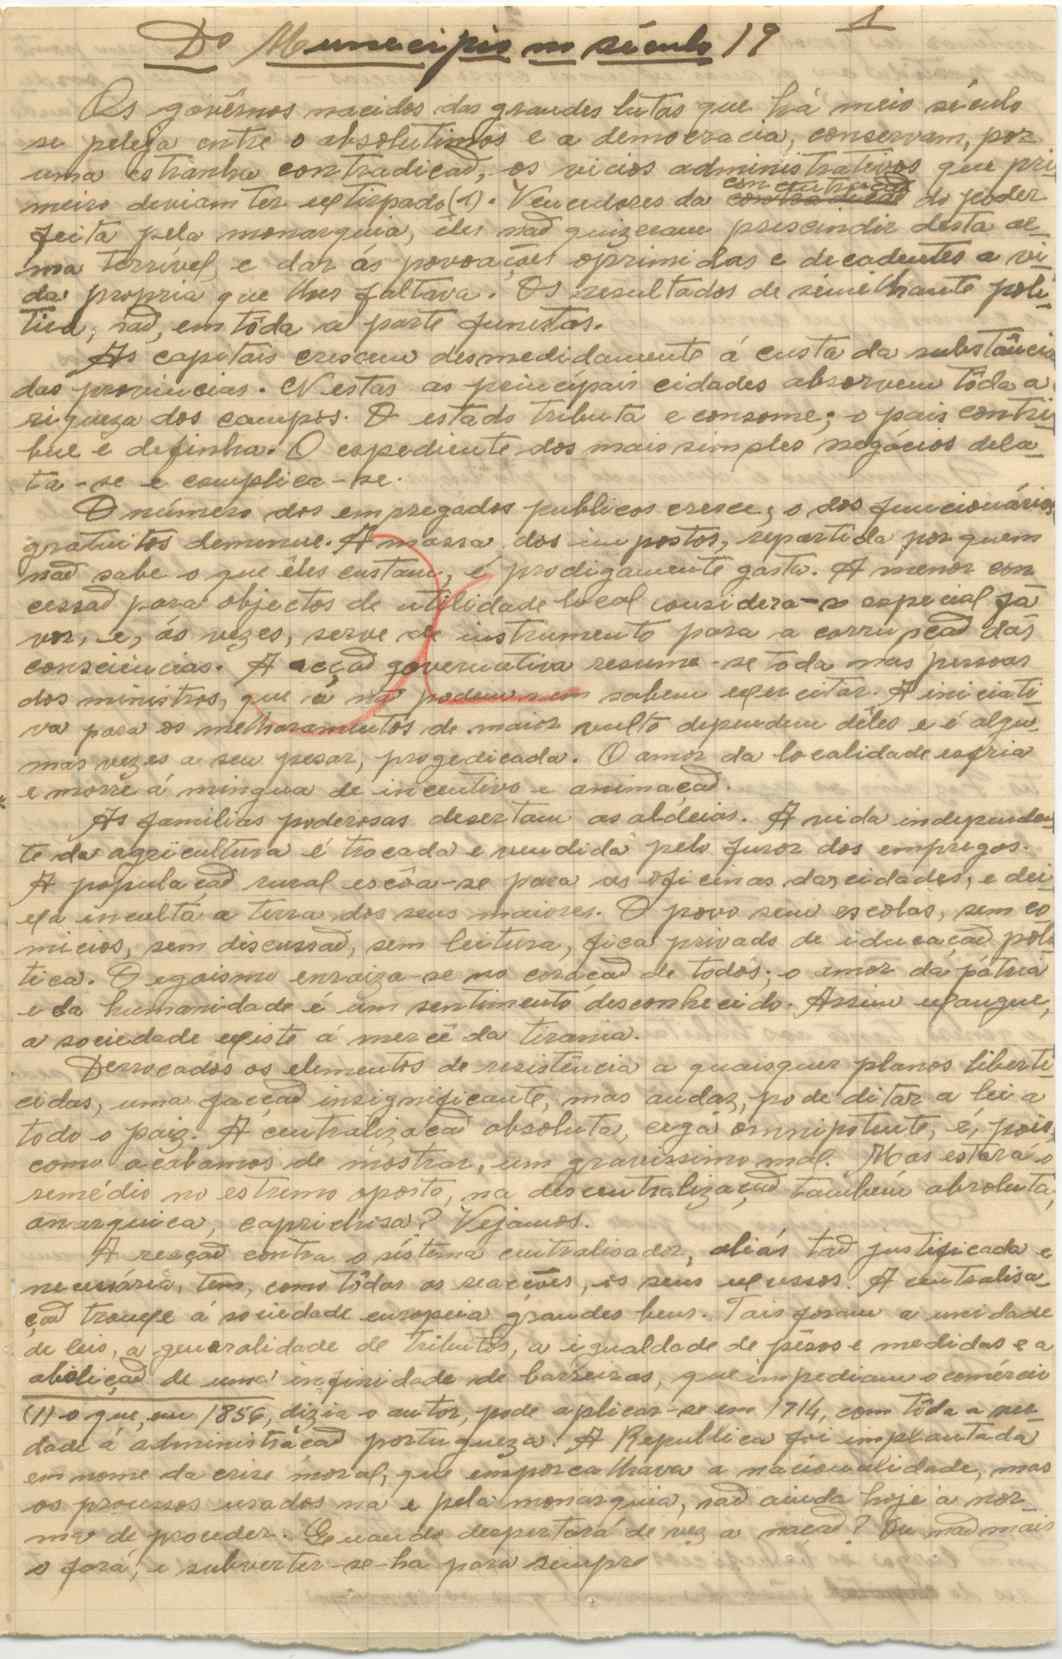 1
Do Municipio no século 19
Os govêrnos nacidos das grandes lutas que há meio século
se peleja entre o absolutimos e a democracia, conservam, por
uma estranha contradiçaõ, os vicios administrativos que pri-
meiro deviam ter extirpado (1). Vencedores da concentração do poder
feita pela monarquia, êles naõ quizeram prescindir desta ar-
ma terrível, e dar ás povoações oprimidas e decadentes a vi-
da propria que lhes faltava. Os resultados de semelhante poli-
tica, saõ, em tôda a parte funestos.
As capitais crescem desmedidamente á custa da substância
das provincias. Nestas as principais cidades absorvem tôda a
riqueza dos campos. O estado tributa e consome; o paiz contri-
bue e definha. O expediente dos mais simples negócios dela-
ta-se e complica-se.
O número dos empregados publicos cresce, o dos funcionários
gratuitos deminue. A massa dos impostos, repartida por quem
naõ sabe o que êles custam, é prodigamente gasta. A menor con-
cessaõ para objectos de utilidade local considera-se especial fa-
vor, e, ás vezes, serve de instrumento para a corrupçaõ das
consciências. A acçaõ governativa resume-se toda nas pessoas
dos ministros, que a naõ podem nem sabem exercitar. A iniciati-
va para os melhoramentos de maior vulto dependem dêles e é algu-
mas vezes a seu pesar, progedicada. O amor da localidade esfria
e morre á mingua de incentivo e animaçaõ.
As familias poderosas desertam as aldeias. A vida independen-
te da agricultura é trocada e vendida pelo furor dos empregos.
A populaçaõ rural escôa-se para as oficinas das cidades, e dei-
xa inculta a terra dos seus maiores. O povo sem escolas, sem co-
micios, sem discussaõ, sem leitura, fica privado de iducaçaõ poli-
tica. O egoismo enraiza-se no coraçaõ de todos; o amor da pátria
e da humanidade é um sentimento desconhecido. Assim exangue,
a sociedade existe á mercê da tirania.
Derrocados os elementos de resistência a quaisquer planos liberti-
cidas, uma facçaõ insignificante, mas audaz, pode ditar a lei a
todo o paiz. A centralizaçaõ absoluta, cega omnipotente, é, pois,
como acabamos de mostrar, um gravissimo mal. Mas estará o
remédio no estremo oposto, na descentralizaçaõ tambem absoluta,
anarquica, caprichosa? Vejamos.
A reaçaõ contra o sistema centralisador, aliás taõ justificada e
necessária, tem, como tôdas as reações, os seus excessos. A centralisa-
çaõ trouxe á sociedade europeia grandes bens. Tais foram a unidade
de leis, a generalidade de tributos, a igualdade de pêsos e medidas e a
aboliçaõ de uma infinidade de barreiras, que impediam o comércio
(1) o que, em 1856, dizia o autor, pode aplicar-se em 1914, com tôda a ver-
dade á administraçaõ portugueza. A Republica foi implantada
em nome da crise moral, que emporcalhava a nacionalidade, mas
os processos usados na e pela monarquia, saõ ainda hoje a nor-
ma de proceder. Quando despertará de vez a naçaõ? Ou naõ mais
o fará, e subverter-se-ha para sempre